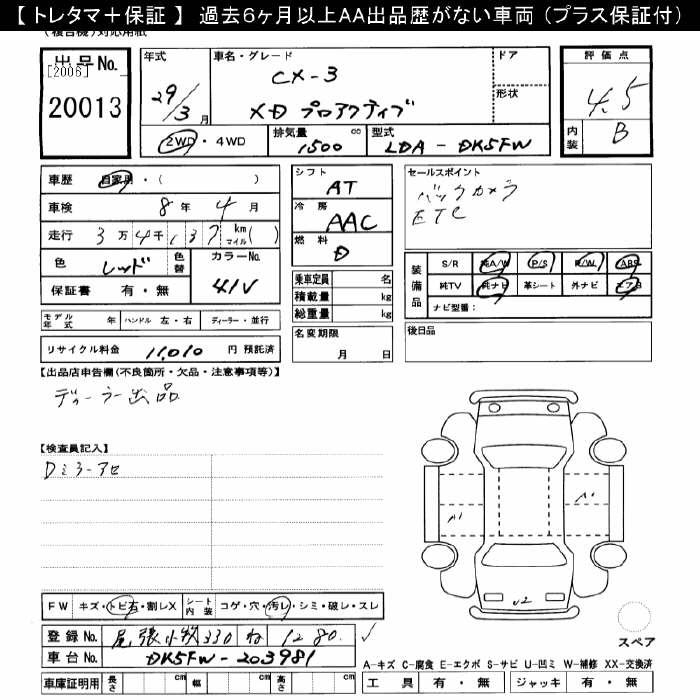 【 トレタマ＋保証 】 過去6ヶ月以上AA出品歴がない車両 (プラス保証付)
(複合機) 対応用紙
出品No.
[2006]
20013
年式
29/3月
車名・グレード
CX-3
XD プロアクティブ
ドア
形状
評価点
4.5
内装
B
2WD・4WD
排気量 cc
1500
型式
LDA - DK5FW
車歴 自家用・( )
車検 8年 4月
走行 3万4千137 km マイル( )
色 レッド 色替
カラーNo.
41V
保証書 有・無
モデル年式 年 ハンドル 左・右 ディーラー・並行
リサイクル料金 11,010 円 預託済
シフト
AT
冷房
AAC
燃料
D
乗車定員 名
積載量 kg
総重量 kg
名変期限
月 日
セールスポイント
バックカメラ
ETC
装備品
S/R 純A/W P/S P/W ABS
純TV 純ナビ 革シート 外ナビ エアB
ナビ型番：
後日品
【出品店申告欄(不良箇所・欠品・注意事項等)】
ディーラー出品
【検査員記入】
Dミラーアセ
A1
A1
U2
スペア
FW キズ・トビ石・割レX シート内装 コゲ・穴・汚レ・シミ・破レ・スレ
登録No. 尾張小牧 330 ね 1280
車台No. DK5FW-203981
車庫証明用 長さ cm 幅 cm 高さ cm
A-キズ C-腐食 E-エクボ S-サビ U-凹ミ W-補修 XX-交換済
工具 有・無 ジャッキ 有・無